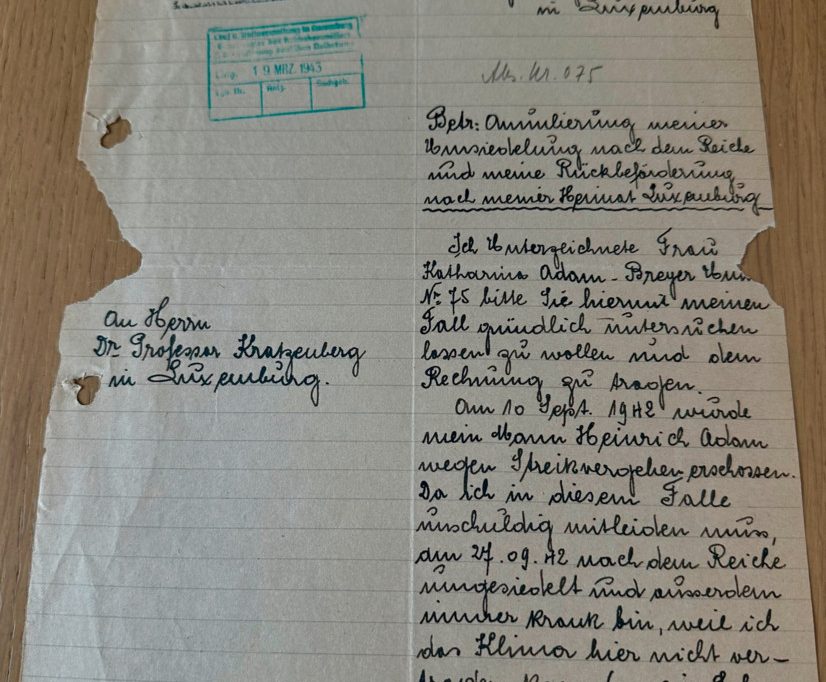 in Luxemburg
19. MRZ. 1943
Abs. Nr. 075
Betr: Annulierung meiner
Umsiedelung nach dem Reiche
und meine Rückbeförderung
nach meiner Heimat Luxemburg
Ich Unterzeichnete Frau
Katharina Adam - Breyer
Nr. 75 bitte Sie hiermit meinen
Fall gründlich untersuchen
lassen zu wollen und dem
Rechnung zu tragen.
Am 10 Sept. 1942 wurde
mein Mann Heinrich Adam
wegen Streikvergehen erschossen.
Da ich in diesem Falle
unschuldig mitleiden muss,
am 27.09.42 nach dem Reiche
umgesiedelt und ausserdem
immer krank bin, weil ich
das Klima hier nicht ver-
An Herrn
Dr. Professor Kratzenberg
in Luxemburg.